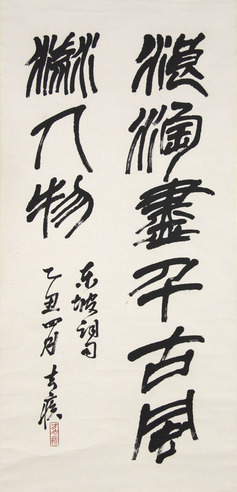 浪淘盡千古風
流人物
東坡詞句
乙丑四月去疾